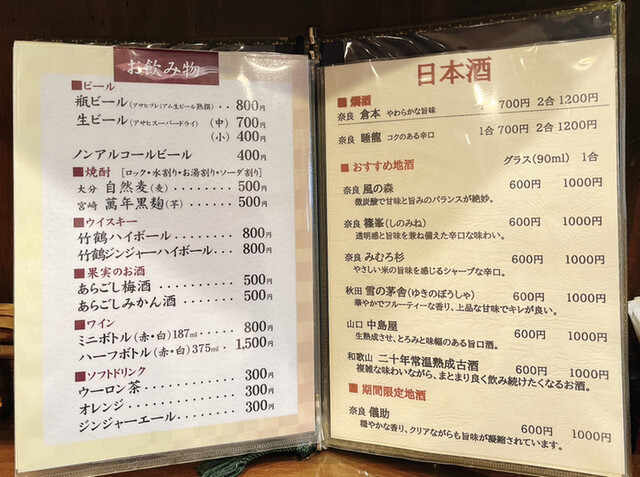 お飲み物
■ビール
瓶ビール(アサヒプレミアム生ビール熟撰)‥800円
生ビール(アサヒスーパードライ) (中) 700円
(小) 400円
ノンアルコールビール 400円
■焼酎 [ロック・水割り・お湯割り・ソーダ割り]
大分 自然麦(麦)‥‥‥‥500円
宮崎 萬年黒麹(芋)‥‥‥500円
■ウイスキー
竹鶴ハイボール‥‥‥‥800円
竹鶴ジンジャーハイボール‥‥800円
■果実のお酒
あらごし梅酒‥‥‥‥500円
あらごしみかん酒‥‥‥500円
■ワイン
ミニボトル(赤・白)187ml‥‥800円
ハーフボトル(赤・白)375ml‥1,500円
■ソフトドリンク
ウーロン茶‥‥‥‥300円
オレンジ‥‥‥‥300円
ジンジャーエール‥‥‥300円
日本酒
■燗酒
奈良 倉本 やわらかな旨味 700円 2合 1200円
奈良 睡龍 コクのある辛口 1合 700円 2合 1200円
■おすすめ地酒 グラス(90ml) 1合
奈良 風の森 600円 1000円
微炭酸で甘味と旨みのバランスが絶妙。
奈良 篠峯(しのみね) 600円 1000円
透明感と旨味を兼ね備えた辛口な味わい。
奈良 みむろ杉 600円 1000円
やさしい米の旨味を感じるシャープな辛口。
秋田 雪の茅舎(ゆきのぼうしゃ) 600円 1000円
華やかでフルーティーな香り、上品な甘味でキレが良い。
山口 中島屋 600円 1000円
生熟成させ、とろみと味幅のある旨口酒。
和歌山 二十年常温熟成古酒 600円 1000円
複雑な味わいながら、まとまり良く飲み続けたくなるお酒。
■期間限定地酒
奈良 儀助 600円 1000円
穏やかな香り、クリアながらも旨味が凝縮されています。